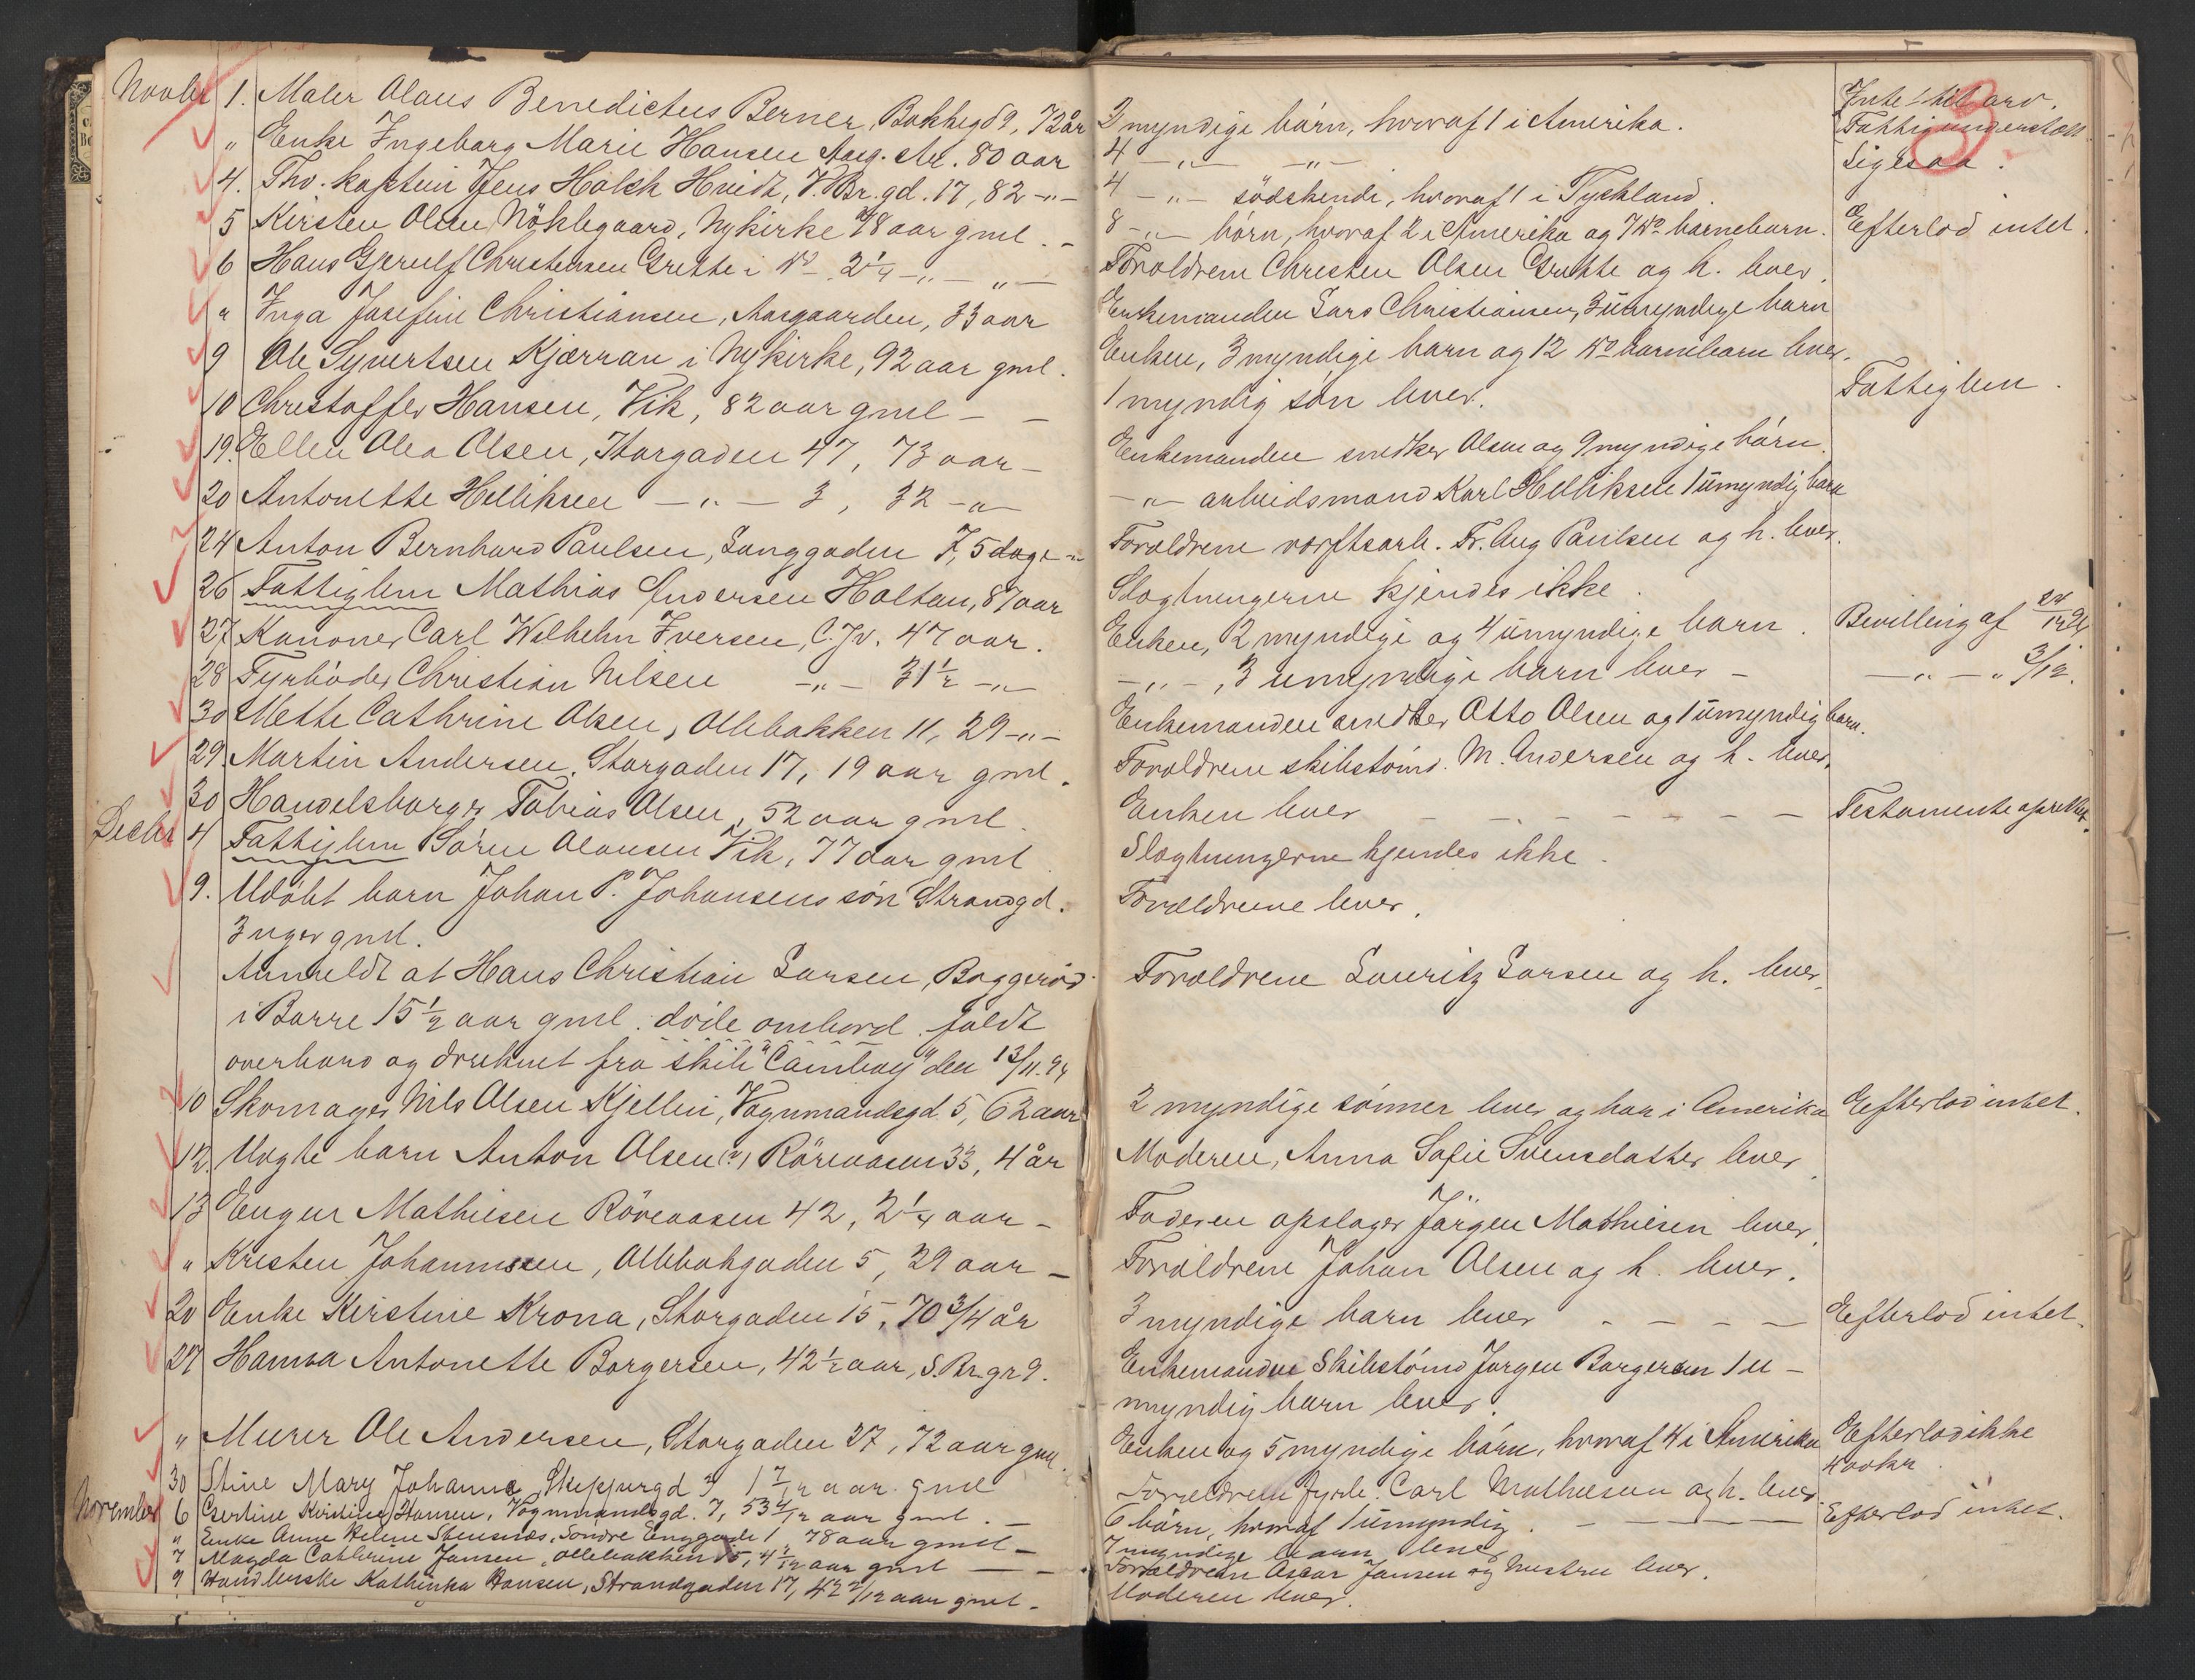 Novbr 1. Maler Olaus Benedictus Berner, Bakkegd 9, 72 år
2 myndige börn, hvoraf 1 i Amerika.
" Enke Ingeborg Marie Hansen Aasg. str. 80 aar
4 —"— —"—
Fattigunderstött.
4. Thv. kaptein Jens Holck Hvidt, V. Br. gd. 17, 82 -"-
4 —"— södskende, hvoraf 1 i Tyskland.
Ligesaa.
5 Kirsten Olsen Nöklegaard, Nykirke 78 aar gml. -
8 —"— börn, hvoraf 2 i Amerika og 7 do barnebarn.
Efterlod intet.
6 Hans Gjerulf Christensen Grette i do 2 1/4 —"— "—
Forældrene Christen Olsen Grette og h. lever.
" Inga Josefine Christiansen, Aasgaarden, 33 aar
Enkemanden Lars Christiansen, 3 umyndige barn
9 Ole Syvertsen Kjærran i Nykirke, 92 aar gml.
Enken, 3 myndige barn og 12 do barnebarn lever.
10 Christoffer Hansen, Vik, 82 aar gml — —
1 myndig sön lever.
Fattiglem.
19. Ellen Olea Olsen, Storgaden 47, 73 aar —
Enkemanden snedker Olsen og 9 myndige börn.
20 Antonette Helliksen —"— 3, 32 -"-
—"— arbeidsmand Karl Helliksen 1 umyndig barn
24 Anton Bernhard Paulsen, Langgaden 7, 5 dage -"
Forældrene værftsarb. Fr. Aug Paulsen og h. lever.
26 Fattiglem Mathias Andersen Holtan, 87 aar
Slægtningerne kjendes ikke.
27. Kanoner Carl Wilhelm Iversen, C. Jv. 47 aar.
Enken, 2 myndige og 4 umyndige barn.
Bevilling af
28 Fyrböder Christian Nilsen —"— 31 1/2 —"—
—"—, 3 umyndige barn lever —
—"— " 3/12.
30 Mette Cathrine Olsen, Ollebakken 11, 29 -"-
Enkemanden snedker Otto Olsen og 1 umyndig barn.
29. Martin Andersen, Storgaden 17, 19 aar gml.
Forældrene skibstömd. M. Andersen og h. lever.
30 Handelsborger Tobias Olsen, 52 aar gml.
Enken lever — — — — — — —
Testamente oprettet.
Decbr 4 Fattiglem Sören Olausen Vik, 77 aar gml
Slægtningerne kjendes ikke.
9. Udöbt barn Johan P. Johansens sön Strandgd.
Forældrene lever.
3 uger gml.
Anmeldt at Hans Christian Larsen, Baggeröd
Forældrene Lauritz Larsen og h. lever.
i Borre 15 1/2 aar gml. döde ombord faldt
overbord og druknet fra skib "Cambay" den 13/11.94
10 Skomager Nils Olsen Kjellin, Vognmandsgd. 5, 62 aar
2 myndige sönner lever og har i Amerika
Efterlod intet.
12. Uægte barn Anton Olsen (?) Röreaasen 33, 4 år
Moderen, Anna Sofie Svensdatter lever.
13 Eugen Mathiesen Röreaasen 42, 2 1/4 aar —
Faderen opslager Jörgen Mathiesen lever.
" Kristen Johannesen, Ollebakgaden 5, 29 aar —
Forældrene Johan Olsen og h. lever.
20 Enke Kirstine Krona, Storgaden 15, 70 3/4 år
3 myndige barn lever — — — —
Efterlod intet.
27 Hanna Antonette Borgersen, 42 1/2 aar, S. Br. gr 9.
Enkemanden Skibstömd Jörgen Borgersen 1 u-
myndig barn lever.
" Murer Ole Andersen, Storgaden 27, 72 aar gml.
Enken og 5 myndige börn, hvoraf 4 i Amerika
Efterlod ikke
30 Stine Mary Johanne, Skippergd 3 1 7/12 aar gml
Forældrene fyrb. Carl Mathiesen og h. lever
November 6 Kirstine Hansen, Vognmandsgd. 7, 53 4/12 aar gml. —
6 börn, hvoraf 1 umyndig. — — —
Efterlod intet.
" Enke Anne Helene Stensnæs, Söndre Enggade 1 78 aar gml —
7 myndige barn lever
7 Magda Cathrine Jansen, Ollebakken 15, 4 2/12 aar gml — —
Forældrene Oscar Jansen og hustru lever.
9 Handlerske Kathinka Hansen, Strandgaden 17, 42 2/12 aar gml —
Moderen lever.